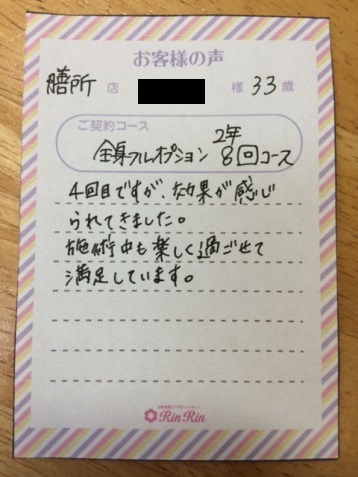 お客様の声
膳所 店 様 33歳
ご契約コース
2年
全身フルオプション 8回コース
4回目ですが、効果が感じ
られてきました。
施術中も楽しく過ごせて
満足しています。
RinRin